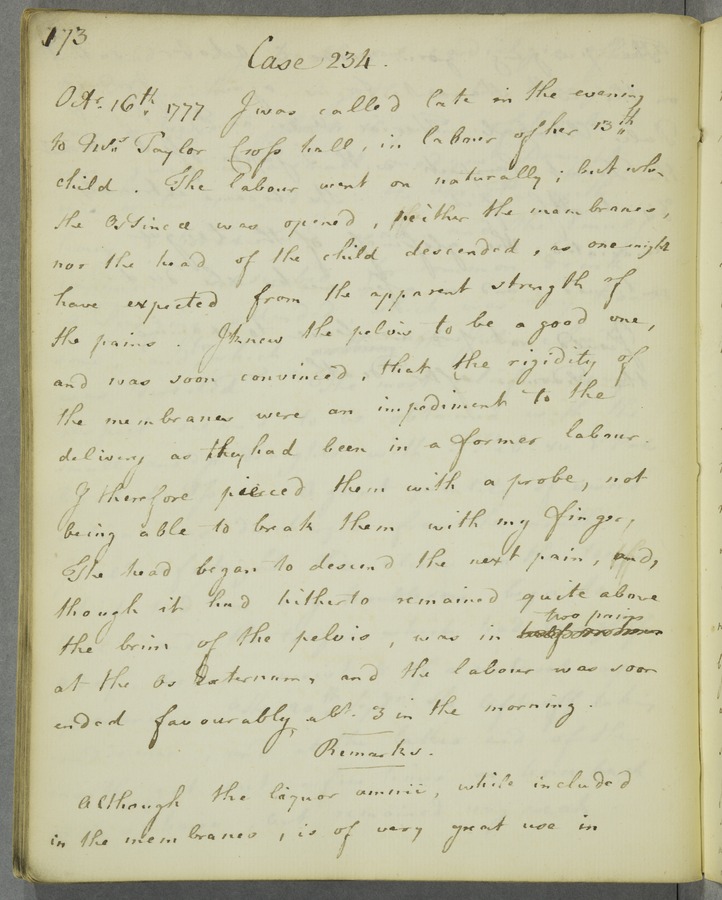 173
Case 234.
Octr. 16th. 1777 I was called late in the evening
to Mrs Taylor Cross hall, in labour of her 13th
child. The labour went on naturally; but when
the Os Tincæ was opened, neither the membranes,
nor the head of the child descended, as one might
have expected from the apparent strength of
the pains. I knew the pelvis to be a good one,
and was soon convinced, that the rigidity of
the membranes were an impediment to the
delivery as they had been in a former labour.
I therefore pierced them with a probe, not
being able to break them with my finger,
The head began to descend the next pain, and,
though it had hitherto remained quite above
two pains
the brim of the pelvis, was in
at the Os Externum, and the labour was soon
ended favourably abt. 3 in the morning.
Remarks.
Although the liquor amnii, while included
in the membranes, is of very great use in